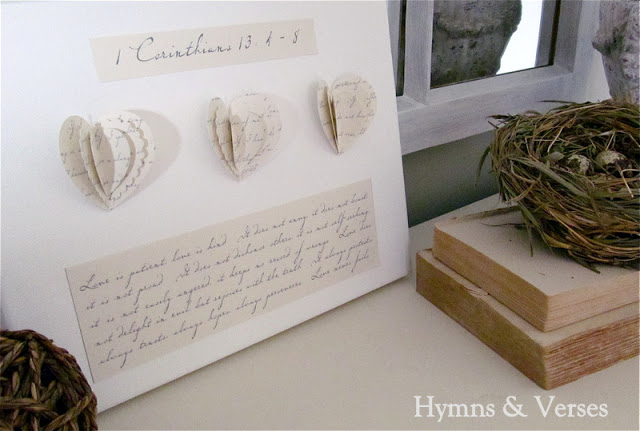 1 Corinthians 13:4-8
Love is patient love is kind It does not envy it does not boast
it is not proud It does not dishonor others it is not self-seeking
it is not easily angered it keeps no record of wrongs Love does
not delight in evil but rejoices with the truth It always protects
always trusts always hopes always perseveres Love never fails
Hymns & Verses